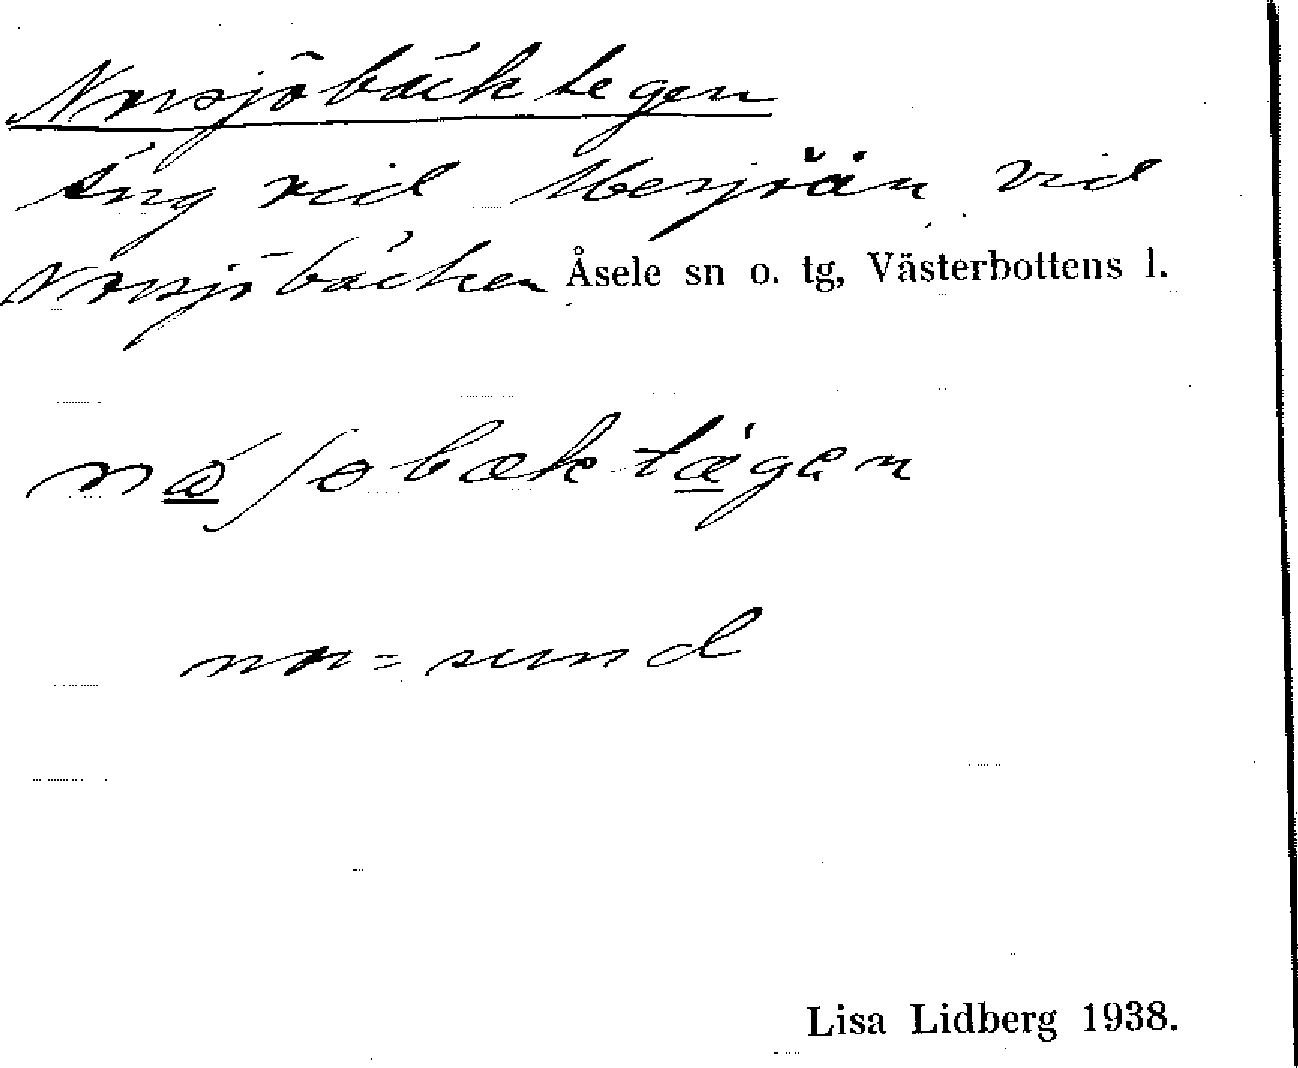 Norsjöbäcktegen
Äng vid Mesjöån vid
Norsjöbäcken Åsele sn o. tg, Västerbottens l.
næʃobæktægen
nor = sund
Lisa Lidberg 1938.